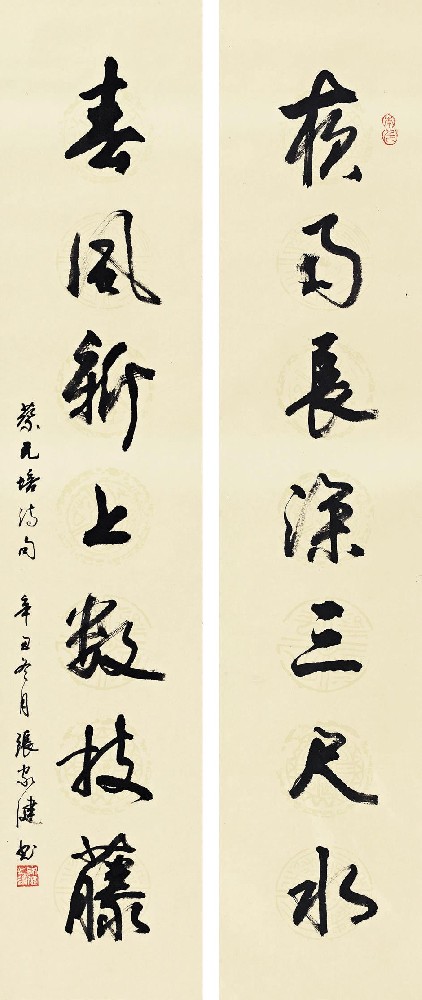 雨長深三尺水
春風新上數枝藤
蔡元培詩句 辛丑冬月 張家健書